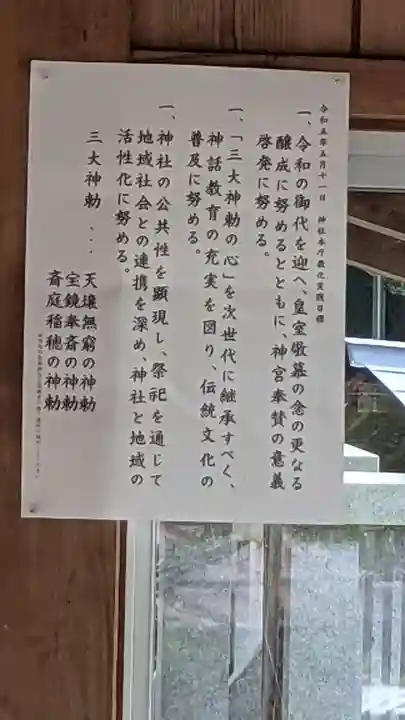 令和五年五月十一日　神社本庁教化実践目標
一、令和の御代を迎へ、皇室敬慕の念の更なる
醸成に努めるとともに、神宮奉賛の意義
啓発に努める。
一、「三大神勅の心」を次世代に継承すべく、
神話教育の充実を図り、伝統文化の
普及に努める。
一、神社の公共性を顕現し、祭祀を通じて
地域社会との連携を深め、神社と地域の
活性化に努める。
三大神勅 ... 天壌無窮の神勅
宝鏡奉斎の神勅
斎庭稲穂の神勅